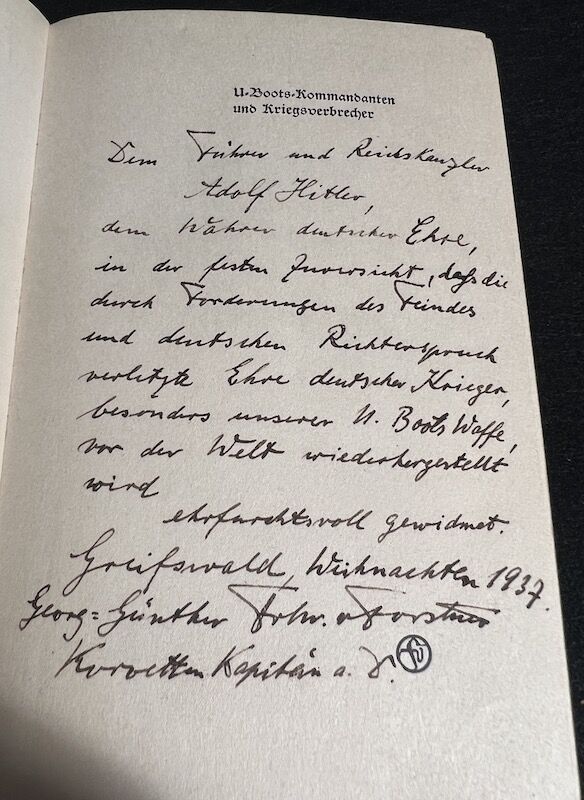 U-Boots-Kommandanten
und Kriegsverbrecher
Dem Führer und Reichskanzler
Adolf Hitler,
dem Wahrer deutscher Ehre,
in der festen Zuversicht, daß die
durch Forderungen des Feindes
und deutschen Richterspruch
verletzte Ehre deutscher Krieger,
besonders unserer U. Boots Waffe,
vor der Welt wiederhergestellt
wird
ehrfurchtsvoll gewidmet.
Greifswald, Weihnachten 1937.
Georg=Günther Frhr. v Forstner
Korvetten Kapitän a. D.